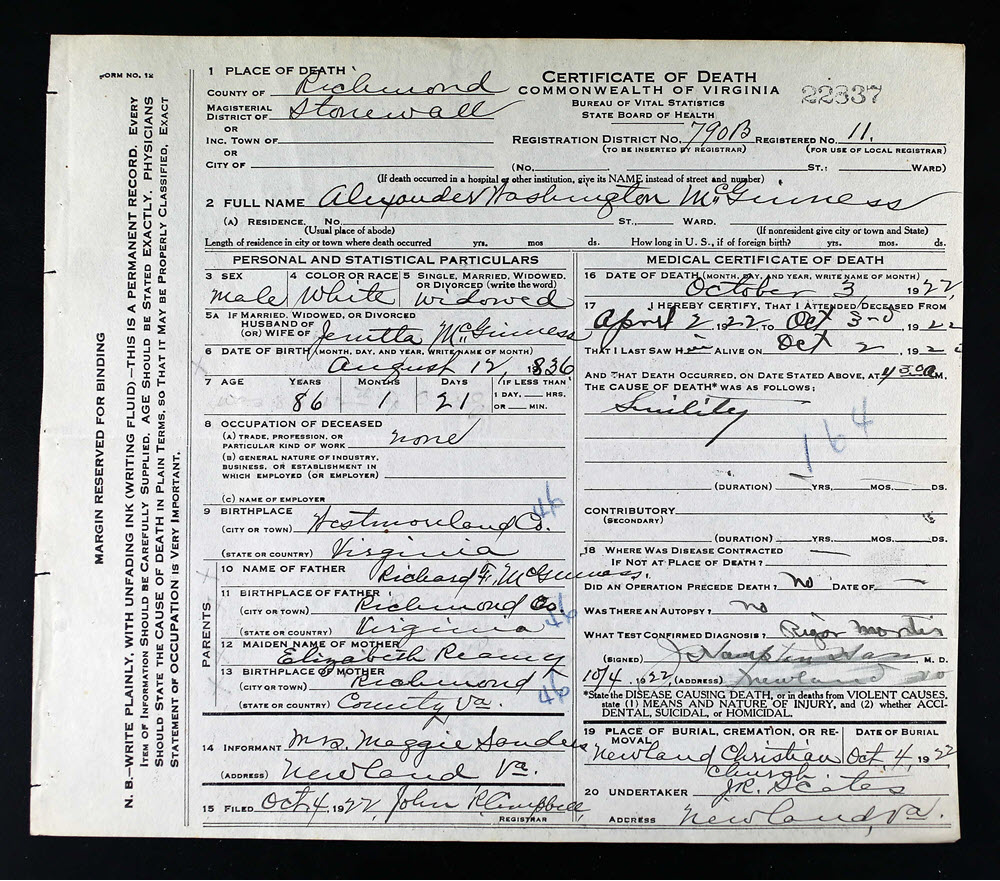 FORM NO. 12
MARGIN RESERVED FOR BINDING
N. B.—WRITE PLAINLY, WITH UNFADING INK (WRITING FLUID)—THIS IS A PERMANENT RECORD. EVERY
ITEM OF INFORMATION SHOULD BE CAREFULLY SUPPLIED. AGE SHOULD BE STATED EXACTLY. PHYSICIANS
SHOULD STATE THE CAUSE OF DEATH IN PLAIN TERMS, SO THAT IT MAY BE PROPERLY CLASSIFIED. EXACT
STATEMENT OF OCCUPATION IS VERY IMPORTANT.
1 PLACE OF DEATH
COUNTY OF Richmond
MAGISTERIAL DISTRICT OF Stonewall
OR
INC. TOWN OF
OR
CITY OF
CERTIFICATE OF DEATH
COMMONWEALTH OF VIRGINIA
BUREAU OF VITAL STATISTICS
STATE BOARD OF HEALTH
22337
REGISTRATION DISTRICT NO. 790B REGISTERED NO. 11.
(TO BE INSERTED BY REGISTRAR) (FOR USE OF LOCAL REGISTRAR)
(NO. ST.: WARD)
(If death occurred in a hospital or other institution, give its NAME instead of street and number)
2 FULL NAME Alexander Washington McGinness
(A) RESIDENCE. No. ST., WARD.
(Usual place of abode) (If nonresident give city or town and State)
Length of residence in city or town where death occurred yrs. mos ds. How long in U. S., if of foreign birth? yrs. mos. ds.
PERSONAL AND STATISTICAL PARTICULARS
3 SEX 4 COLOR OR RACE 5 SINGLE, MARRIED, WIDOWED, OR DIVORCED (write the word)
male White widowed
5A IF MARRIED, WIDOWED, OR DIVORCED
HUSBAND OF
(OR) WIFE OF McGinness
6 DATE OF BIRTH (MONTH, DAY, AND YEAR, WRITE NAME OF MONTH)
August 12, 1836
7 AGE YEARS MONTHS DAYS IF LESS THAN
1 DAY, HRS.
OR MIN.
86 1 21
8 OCCUPATION OF DECEASED
(A) TRADE, PROFESSION, OR
PARTICULAR KIND OF WORK none
(B) GENERAL NATURE OF INDUSTRY,
BUSINESS, OR ESTABLISHMENT IN
WHICH EMPLOYED (OR EMPLOYER)
(C) NAME OF EMPLOYER
9 BIRTHPLACE
(CITY OR TOWN) Westmoreland Co. 46
(STATE OR COUNTRY) Virginia
PARENTS
10 NAME OF FATHER Richard F. McGinness,
11 BIRTHPLACE OF FATHER
(CITY OR TOWN) Richmond Co.
(STATE OR COUNTRY) Virginia 46
12 MAIDEN NAME OF MOTHER
Elizabeth Reamy
13 BIRTHPLACE OF MOTHER
(CITY OR TOWN) Richmond
(STATE OR COUNTRY) County Va. 46
14 INFORMANT Mrs. Maggie Sanders
(ADDRESS) Newland Va.
15 FILED Oct, 4, 1922, John
REGISTRAR
MEDICAL CERTIFICATE OF DEATH
16 DATE OF DEATH (MONTH, DAY, AND YEAR, WRITE NAME OF MONTH)
October 3 1922,
17 I HEREBY CERTIFY, THAT I ATTENDED DECEASED FROM
April 2, 1922, TO Oct 3rd, 1922
THAT I LAST SAW Him ALIVE ON Oct 2, 192
AND THAT DEATH OCCURRED, ON DATE STATED ABOVE, AT 4 30 A M.
THE CAUSE OF DEATH* WAS AS FOLLOWS:
Sinility
164
(DURATION) YRS. MOS. DS.
CONTRIBUTORY
(SECONDARY)
(DURATION) YRS. MOS. DS.
18 WHERE WAS DISEASE CONTRACTED —
IF NOT AT PLACE OF DEATH?
DID AN OPERATION PRECEDE DEATH? No DATE OF —
WAS THERE AN AUTOPSY? no
WHAT TEST CONFIRMED DIAGNOSIS? Rigor Mortis
(SIGNED) M. D.
10/4, 1922, (ADDRESS) Newland
*State the DISEASE CAUSING DEATH, or in deaths from VIOLENT CAUSES,
state (1) MEANS AND NATURE OF INJURY, and (2) whether ACCI-
DENTAL, SUICIDAL, or HOMICIDAL.
19 PLACE OF BURIAL, CREMATION, OR RE-
MOVAL DATE OF BURIAL
Newland Christian Oct, 4, 1922
Church
20 UNDERTAKER J.R. Scates
ADDRESS Newland, Va.